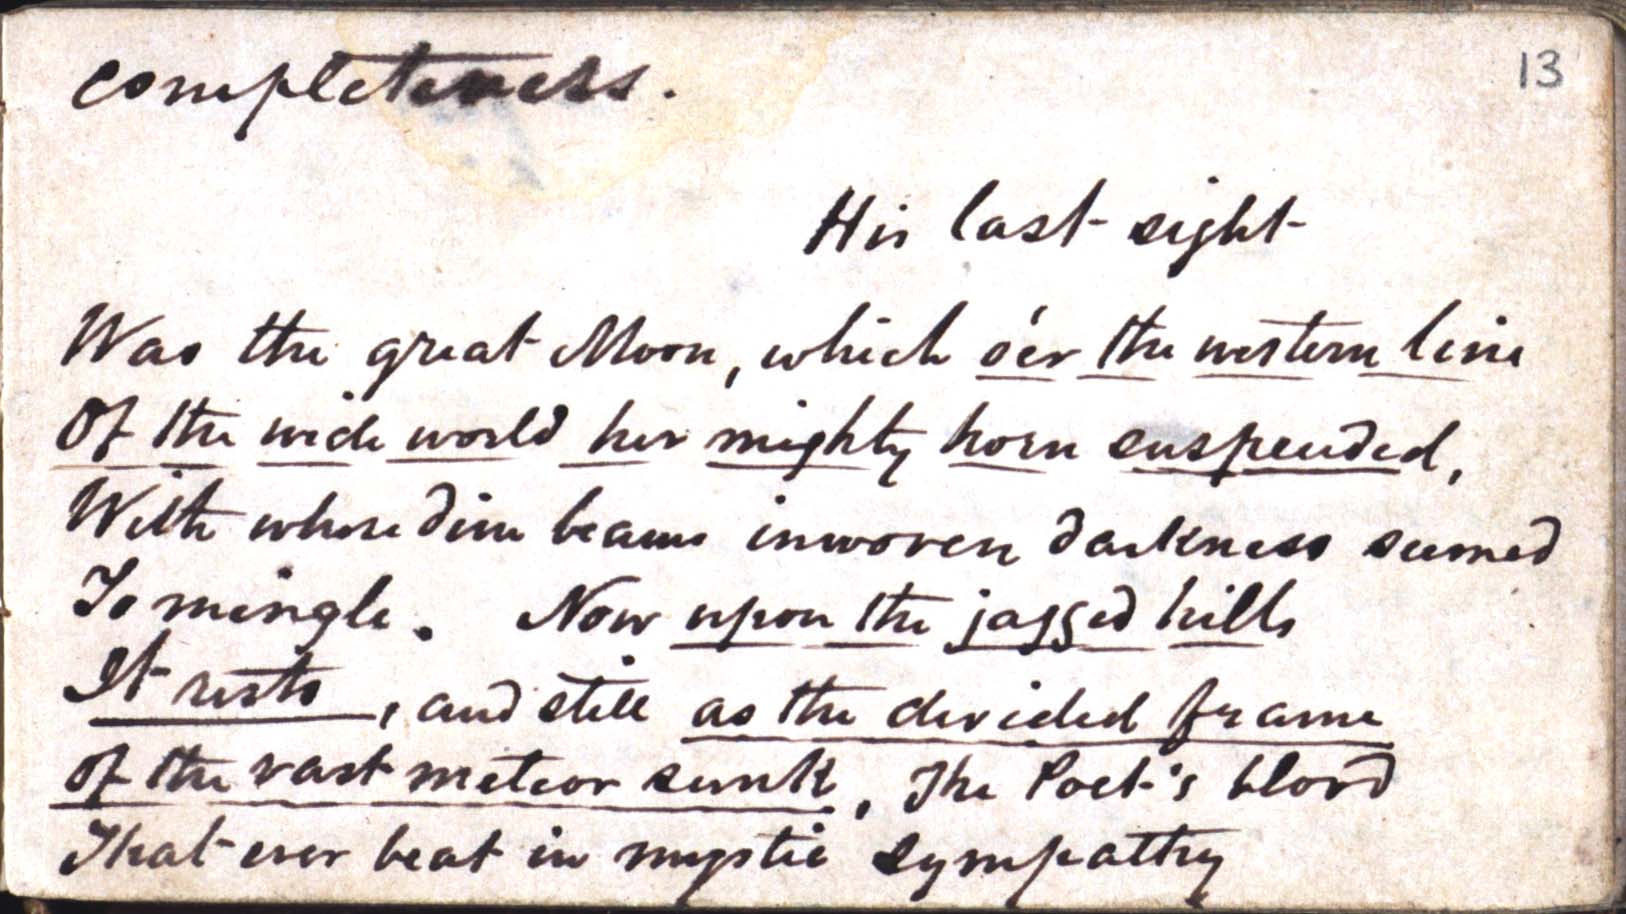 13
completeness.
His last sight
Was the great Moon, which o'er the western line
Of the wide world her mighty horn suspended,
With whose dim beams inwoven darkness seemed
To mingle. Now upon the jagged hills
It rests, and still as the divided frame
of the vast meteor sunk, The Poet's blood
That ever beat in mystic sympathy